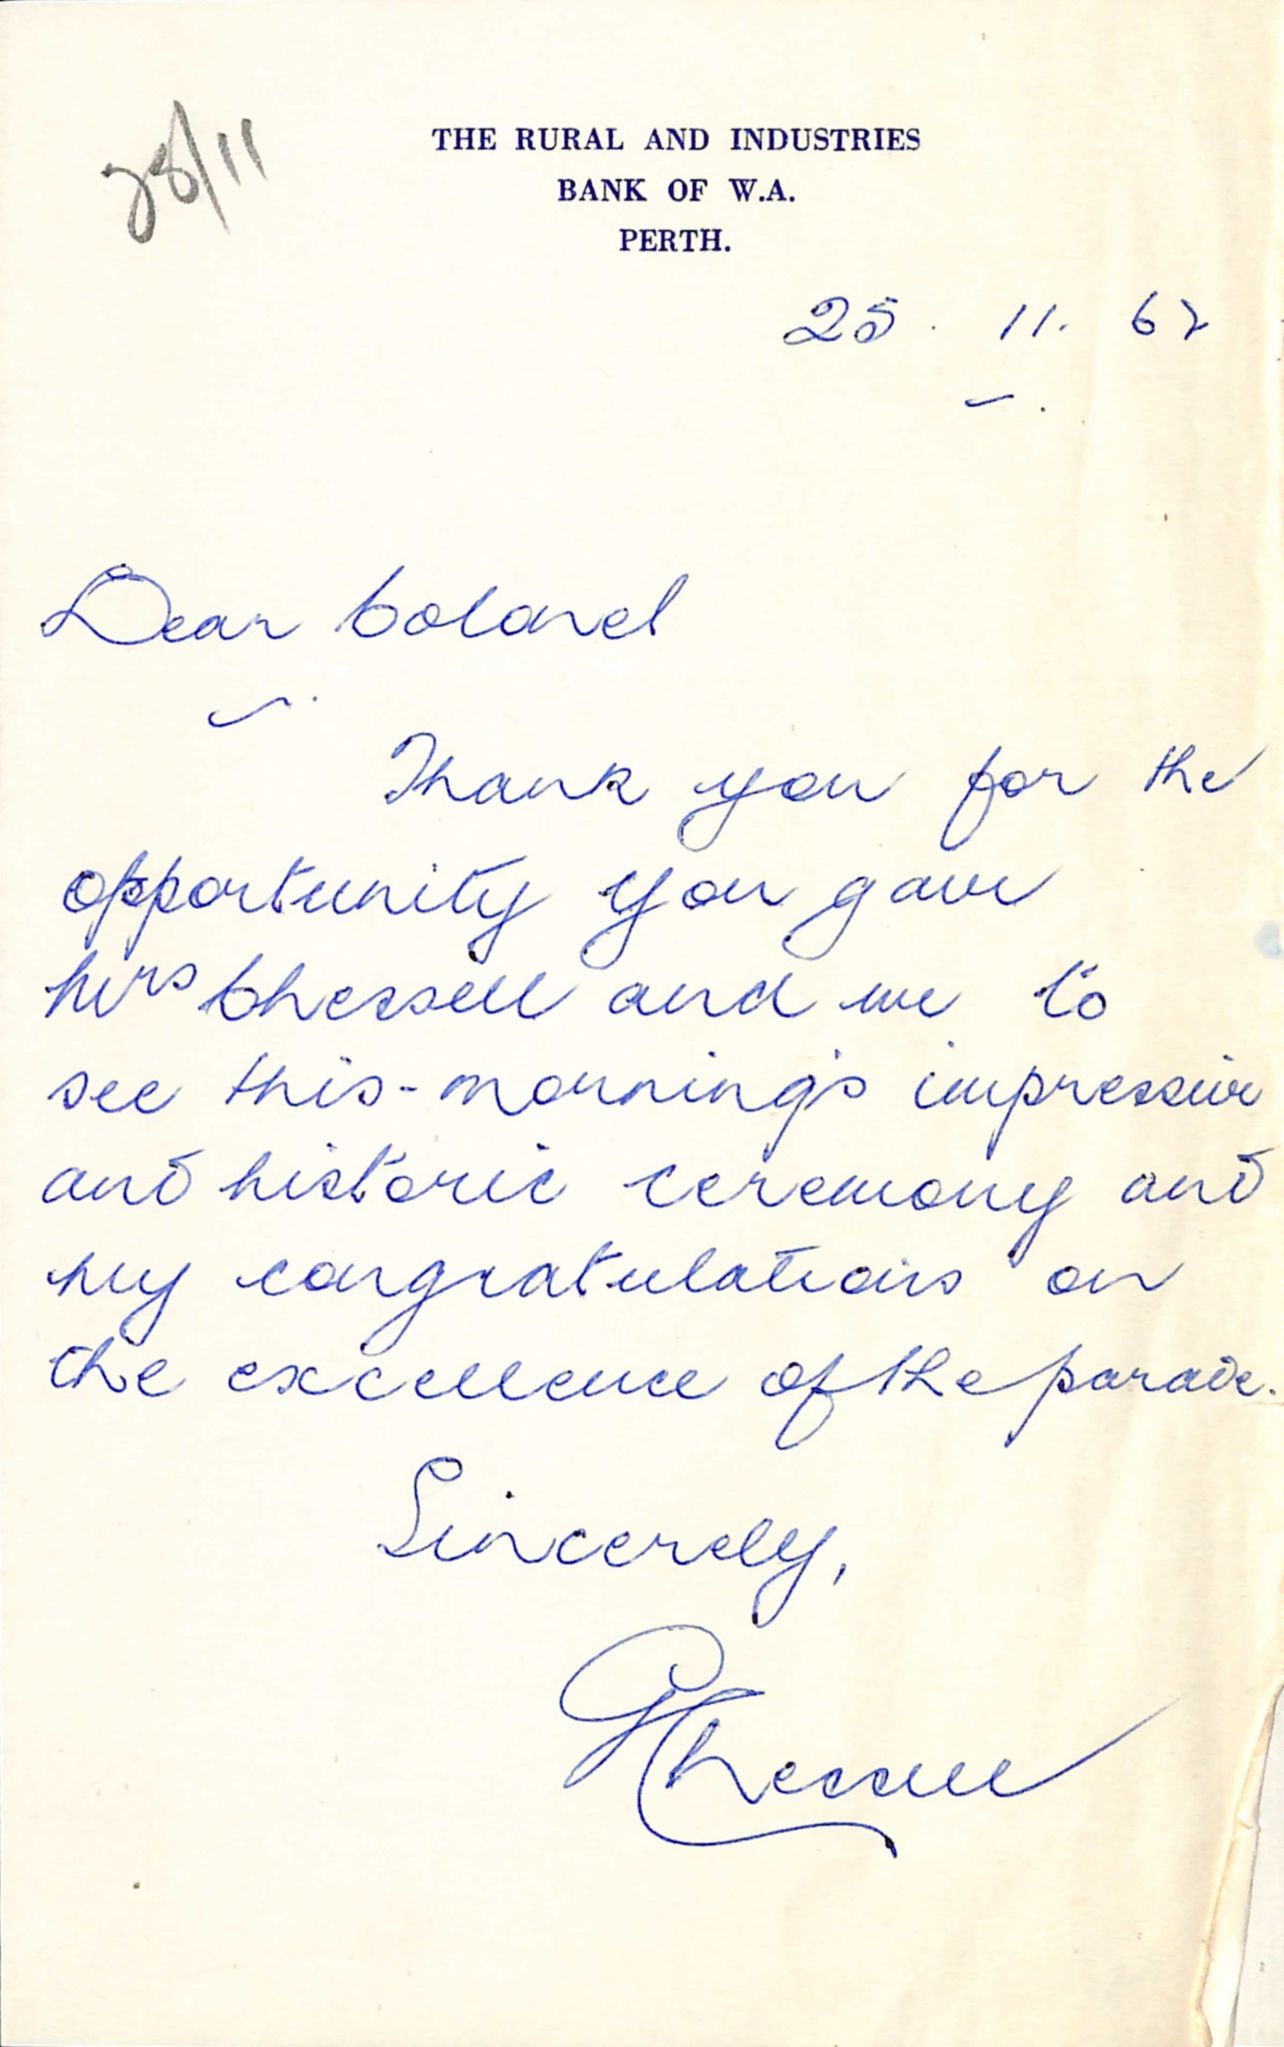 28/11
THE RURAL AND INDUSTRIES
BANK OF W.A.
PERTH.
25. 11. 62
Dear Colonel
Thank you for the
opportunity you gave
Mrs Chessell and me to
see this-morning's impressive
and historic ceremony and
my congratulations on
the excellence of the parade.
Sincerely,
GChessell